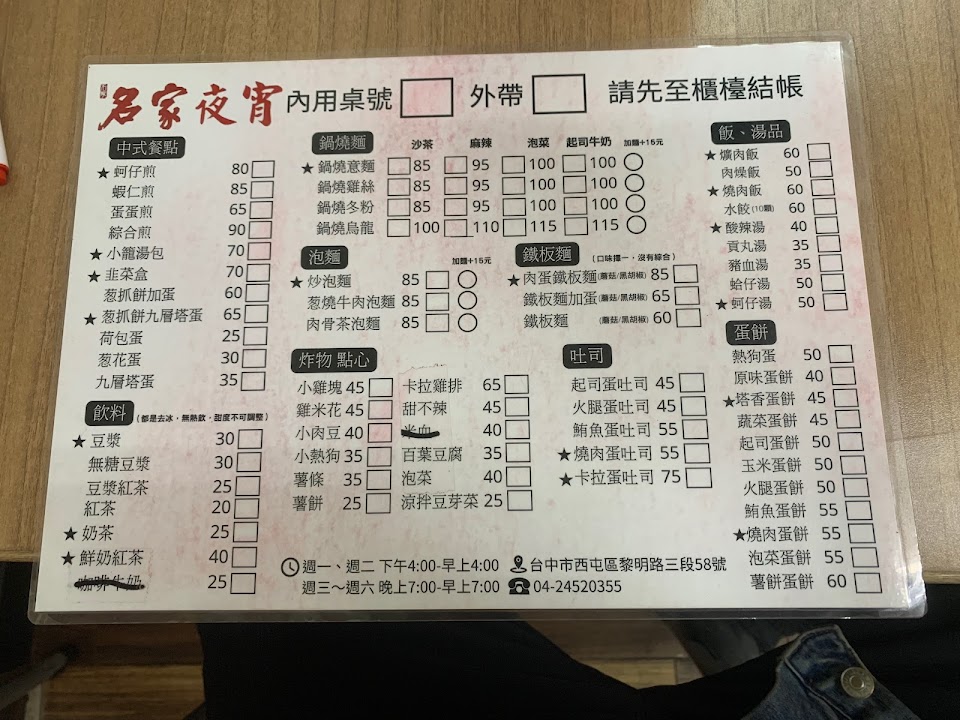 名家夜宵 內用桌號 外帶 請先至櫃檯結帳
中式餐點
★ 蚵仔煎 80
蝦仁煎 85
蛋蛋煎 65
綜合煎 90
★ 小籠湯包 70
★ 韭菜盒 70
葱抓餅加蛋 60
★ 葱抓餅九層塔蛋 65
荷包蛋 25
葱花蛋 30
九層塔蛋 35
飲料 (都是去冰，無熱飲，甜度不可調整)
★ 豆漿 30
無糖豆漿 30
豆漿紅茶 25
紅茶 20
★ 奶茶 25
★ 鮮奶紅茶 40
咖啡牛奶 25
鍋燒麵 沙茶 麻辣 泡菜 起司牛奶 加麵+15元
★ 鍋燒意麵 85 95 100 100
鍋燒雞絲 85 95 100 100
鍋燒冬粉 85 95 100 100
鍋燒烏龍 100 110 115 115
泡麵 加麵+15元
★ 炒泡麵 85
葱燒牛肉泡麵 85
肉骨茶泡麵 85
鐵板麵 (口味擇一，沒有綜合)
★ 肉蛋鐵板麵 (蘑菇/黑胡椒) 85
鐵板麵加蛋 (蘑菇/黑胡椒) 65
鐵板麵 (蘑菇/黑胡椒) 60
炸物 點心
小雞塊 45 卡拉雞排 65
雞米花 45 甜不辣 45
小肉豆 40 米血 40
小熱狗 35 百葉豆腐 35
薯條 35 泡菜 40
薯餅 25 涼拌豆芽菜 25
吐司
起司蛋吐司 45
火腿蛋吐司 45
鮪魚蛋吐司 55
★ 燒肉蛋吐司 55
★ 卡拉蛋吐司 75
飯、湯品
★ 爌肉飯 60
肉燥飯 50
★ 燒肉飯 60
水餃 (10顆) 60
★ 酸辣湯 40
貢丸湯 35
豬血湯 35
蛤仔湯 50
★ 蚵仔湯 50
蛋餅
熱狗蛋 50
原味蛋餅 40
★ 塔香蛋餅 45
蔬菜蛋餅 45
起司蛋餅 50
玉米蛋餅 50
火腿蛋餅 50
鮪魚蛋餅 55
★ 燒肉蛋餅 55
泡菜蛋餅 55
薯餅蛋餅 60
週一、週二 下午4:00-早上4:00
週三～週六 晚上7:00-早上7:00
台中市西屯區黎明路三段58號
04-24520355